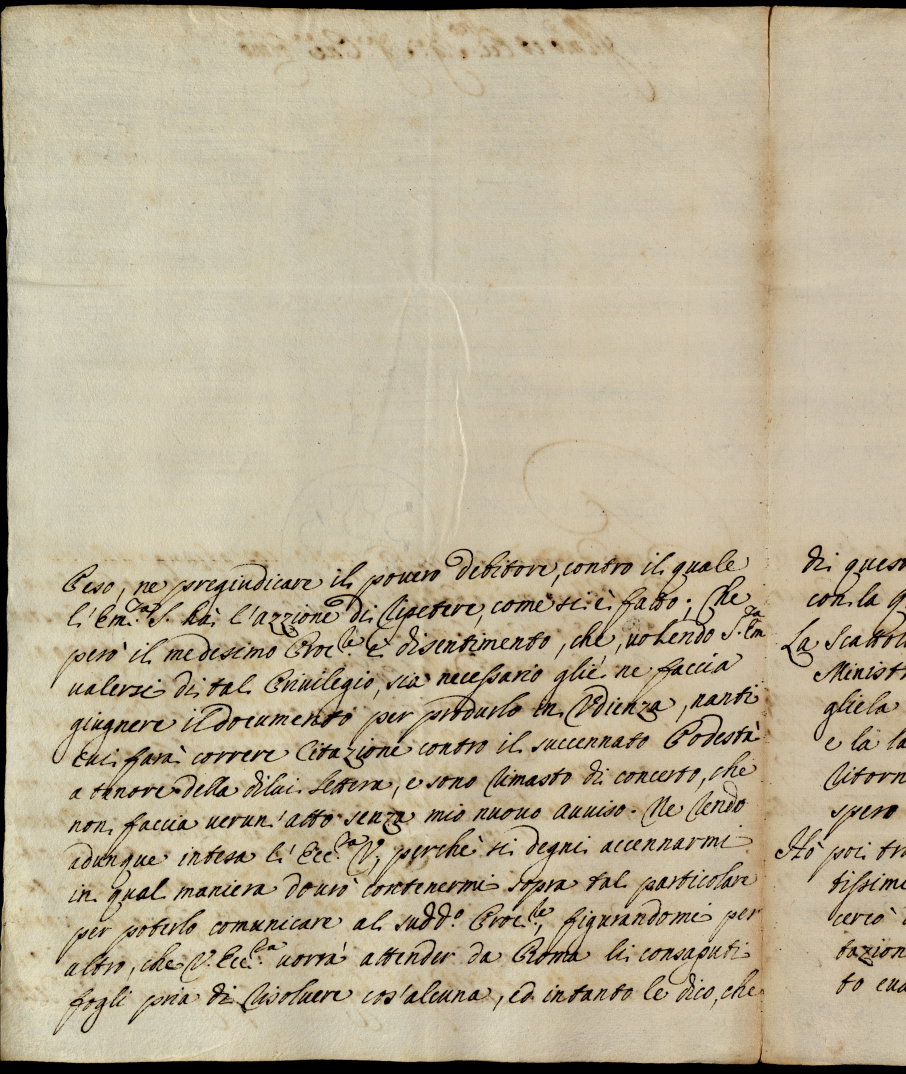 Peso, ne pregiudicare il povero debitore, contro il quale
l'Em.za S. hà l'azzione di Ripetere, come si è fatto; Che
però il medesimo Proc.le è di sentimento, che, volendo S. Em.za
valersi di tal Privilegio, sia necessario gliè ne faccia
giugnere il documento per produrlo in Udienza, nanti
cui farà correre Citazione contro il succennato Podestà
a tenore della di lui lettera, e sono Rimasto di concerto, che
non faccia verun' atto senza mio nuovo avviso. Ne Rendo
adunque intesa l' Ecc.za V, perchè si degni accennarmi
in qual maniera dovrò contenermi sopra tal particolare
per poterlo comunicare al sudd.o Proc.le, figurandomi per
altro, che V. Ecc.za vorrà attender da Roma li consaputi
fogli pria di Risolvere cos' alcuna, ed intanto le dico, che
di ques
con la q
La Scattol
Ministr
gliela
e là la
Ritorn
spero
Hò poi tro
tissime
cercò
tazion
to eva